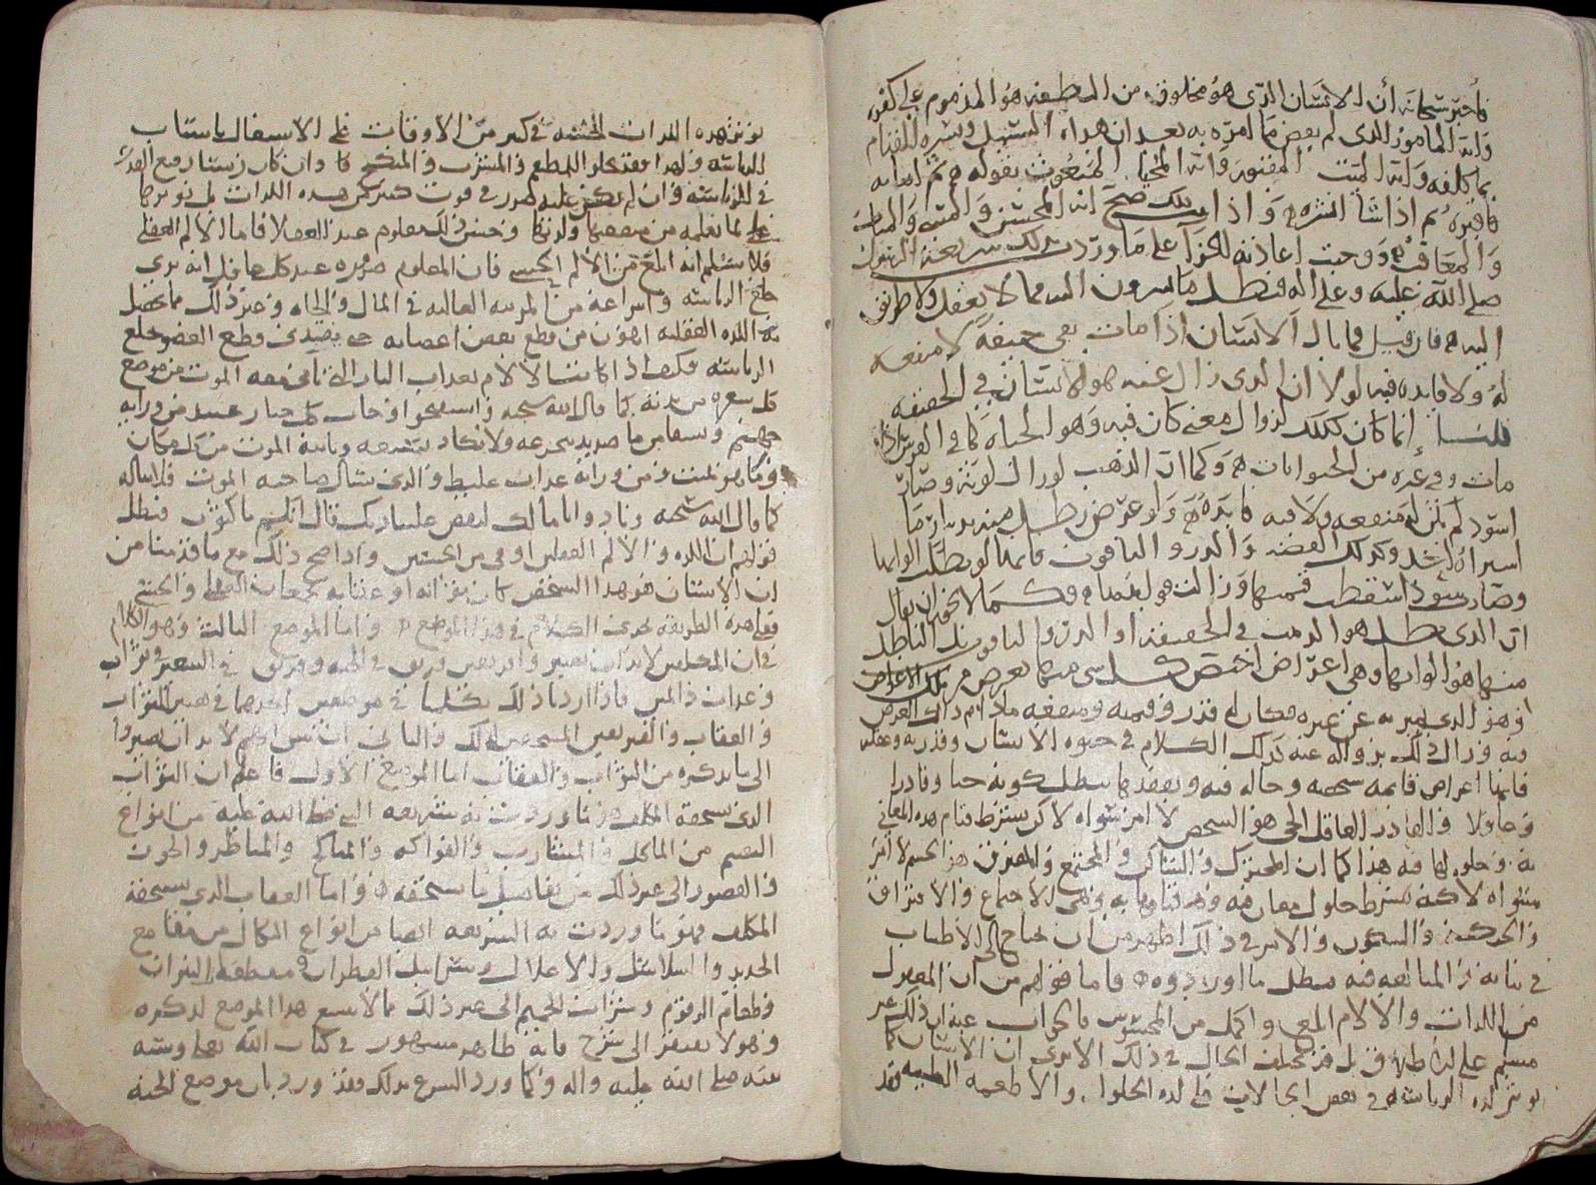 فأخبر سبحانه أن الانسان الذي هو مخلوق من النطفه هو المذموم على كفره
وانه المامور الذي لم يقض ما امره به بعد ان هداه السبيل ويسره للقيام
بما كلفه وانه الميت المقبور وانه المحيا المبعوث بقوله ثم اماته
فاقبره ثم اذا شا انشره واذا بذلك صح انه المحسن والمسي والمثاب
والمعاقب ووجبت اعادته للجزآ على ما وردت بذلك شريعة الرسول
صلى الله عليه وعلى اله فبطل ما يسرون اليه مما لا يعقل ولا طريق
اليه فان قيل فما بال الانسان اذا مات بقي جيفة لا منفعه
له ولا فايده فيه لولا ان الذي زال عنه هو الانسان في الحقيقه
قلنا إنما كان كذلك لزوال معنى كان فيه وهو الحياه كما في الفرس اذا
مات وفي غيره من الحيوانات وكما ان الذهب لو زال لونه وصار
اسود لم يكن له منفعه ولا فيه فايده ولو عرض رطل منه بدينار ما
اشتراه احد وكذلك الفضه والدر والياقوت فانها لو بطلت الوانها
وصارت سودا اسقطت قيمتها وزالت فكما لا يجوز ان يقال
ان الذي بطل هو الذهب في الحقيقه او الدر والياقوت بل الباطل
منها هو الوانها وهي اعراض اختص كل شي منها بعرض من تلك الاعراض
وهو الذي تميز به عن غيره فكان له قدر وقيمه ومنفعه ما دام ذلك العرض
فيه وزال ذلك بزواله عنه كذلك الكلام في حيوه الانسان وقدرته وعقله
فانها اعراض قايمه بشخصه وحاله فيه وبفقدها يبطل كونه حيا وقادرا
وعاقلا والقادر العاقل الحي هو الشخص لا امر سواه لاكن بشرط قيام هذه المعاني
به وحلولها فيه هذا كما ان المتحرك والساكن والمجتمع والمفترق هو الجسم لا امر
سواه لاكنه بشرط حلول معان فيه وقيامها به وهي الاجتماع والافتراق
والحركه والسكون والامر في ذلك اظهر من ان يحتاج الى الاطناب
في بيانه والمبالغه فيه فبطل ما اوردوه فاما قولهم من ان المعقول
من اللذات والالام ابلغ واكمل من المحسوس فالجواب عنه ان ذلك غير
مسلم على الاطلاق بل قد يختلف الحال في ذلك الا ترى ان الانسان كما
يوثر لذه الرياسه في بعض الحالات على لذه الحلوا والاطعمه الطيبه فقد
يوثر هذه اللذات الحسيه في كثير من الاوقات على الاشتغال باسباب
الرياسه ولهذا فقد يخلو للمطعم والمشرب والمنكح وان كان رفيع القدر
في الرياسه وان لم يكن عليه ضرر في فوت كثير من هذه اللذات بل يوثرها
على ما يعلمه من منفعتها ولذتها وحسن ذلك معلوم عند العقلا فاما الالم العقلي
فلا نسلم انه ابلغ من الالم الحسي فان المعلوم ضروره عند كل عاقل انه يرى
خلع الرياسه وانتزاعه من المرتبه العاليه في المال والجاه وغير ذلك مما يحصل
به اللذه العقليه اهون من قطع بعض اعضايه حتى يفتدى قطع العضو بخلع
الرياسه فكيف اذا كانت الالام بعذاب النار التي تاتي معه الموت من موضع
كل شعره من بدنه كما قال الله سبحانه واستفتحوا وخاب كل جبار عنيد من ورايه
جهنم ويسقا من ما صديد يتجرعه ولا يكاد يسيغه وياتيه الموت من كل مكان
وما هو بميت ومن ورايه عذاب غليظ والذي يسال صاحبه الموت فلا يناله
كما قال الله سبحنه ونادوا يا مالك ليقض علينا ربك قال انكم ماكثون فبطل
قولهم ان اللذه والالم العقلين اوفى من الحسيين واذا صح ذلك مع ما قدمنا من
ان الانسان هو هذا الشخص كان ثوابه او عقابه
فعلى هذه الطريقه يجري الكلام في هذا الموضع واما الموضع الثالث وهو الكلام
في ان المكلفين لا بد ان يصيروا فريقين فريق في الجنه وفريق في السعير في ثواب
وعذاب دائمين فاذا اردنا ذلك تكلمنا في موضعين احدهما في معنى الثواب
والعقاب والفريقين المستحقين لذلك والثاني ان نبين انهم لا بد ان يصيروا
الى ما نذكره من الثواب والعقاب اما الموضع الاول فاعلم ان الثواب
الذي يستحقه المكلف هو ما وردت به شريعه النبي صلى الله عليه من انواع
النعيم من الماكل والمشارب والفواكه والمناكح والمناظر والحور
والقصور الى غير ذلك من تفاصيل ما يستحقه واما العقاب الذي يستحقه
المكلف فهو ما وردت به الشريعه ايضا من انواع النكال من مقامع
الحديد والسلاسل والاغلال وسرابيل القطران ومقطعات النيران
وطعام الزقوم وشراب الحميم الى غير ذلك مما لا يتسع هذا الموضع لذكره
وهو لا يفتقر الى شرح فانه ظاهر مشهور في كتاب الله تعالى وسنه
نبيه صلى الله عليه واله وكما ورد الشرع بذلك فقد ورد بان موضع الجنه